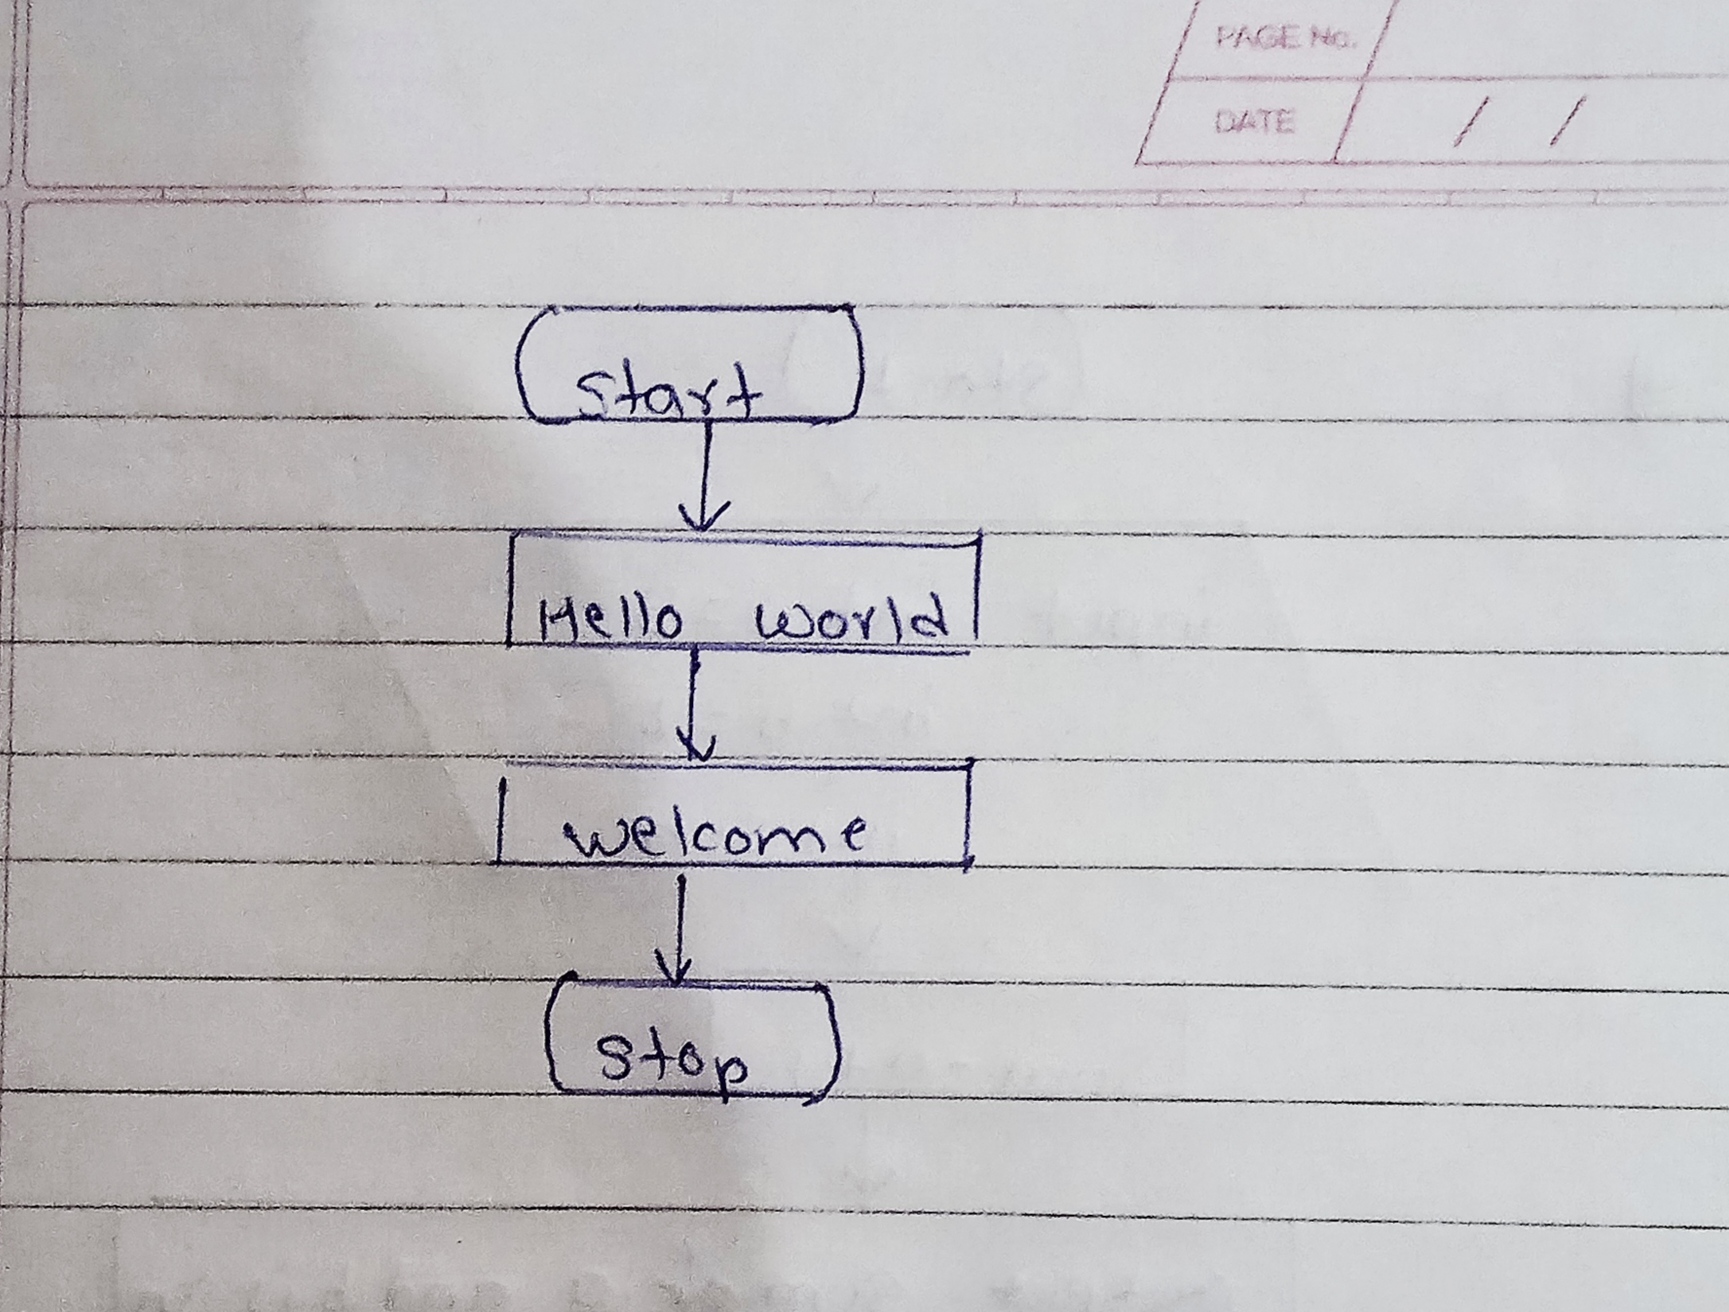 PAGE No.
DATE / /
Start
Hello World
Welcome
Stop